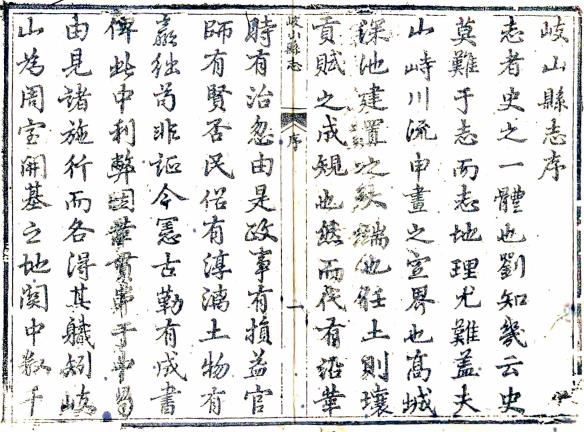 岐山縣志序
志者史之一體也劉知幾云史
莫難于志而志地理尤難蓋夫
山峙川流申畫之宣界也高城
深池建置之
也任土則壤
貢賦之成規也然而代有沿革
岐山縣志
序
一
時有治忽由是政事有損益官
師有賢否民俗有淳漓土物有
嬴絀苟非証今憲古勒有成書
俾此中利弊
由見諸施行而各得其職矧岐
山為周室開基之地關中數千